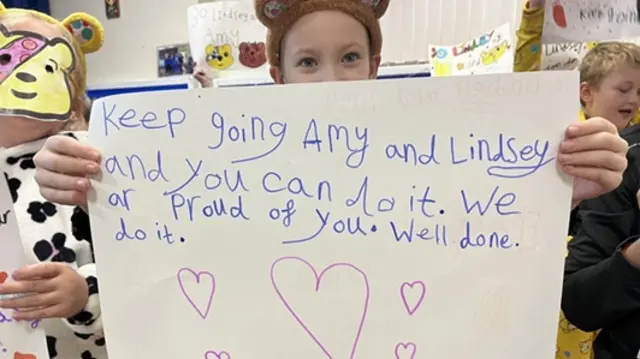 Go Lindsey
Amy
Keep going Amy and Lindsey
and you can do it. We
ar Proud of you. Well done.
do it.